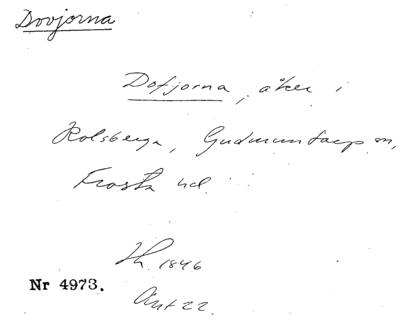 Dovjorna
Dofjorna, åker i
Rolsberga, Gudmuntorp sn,
Frosta hd.
Lh. 1846
Nr 4973.
Akt 22